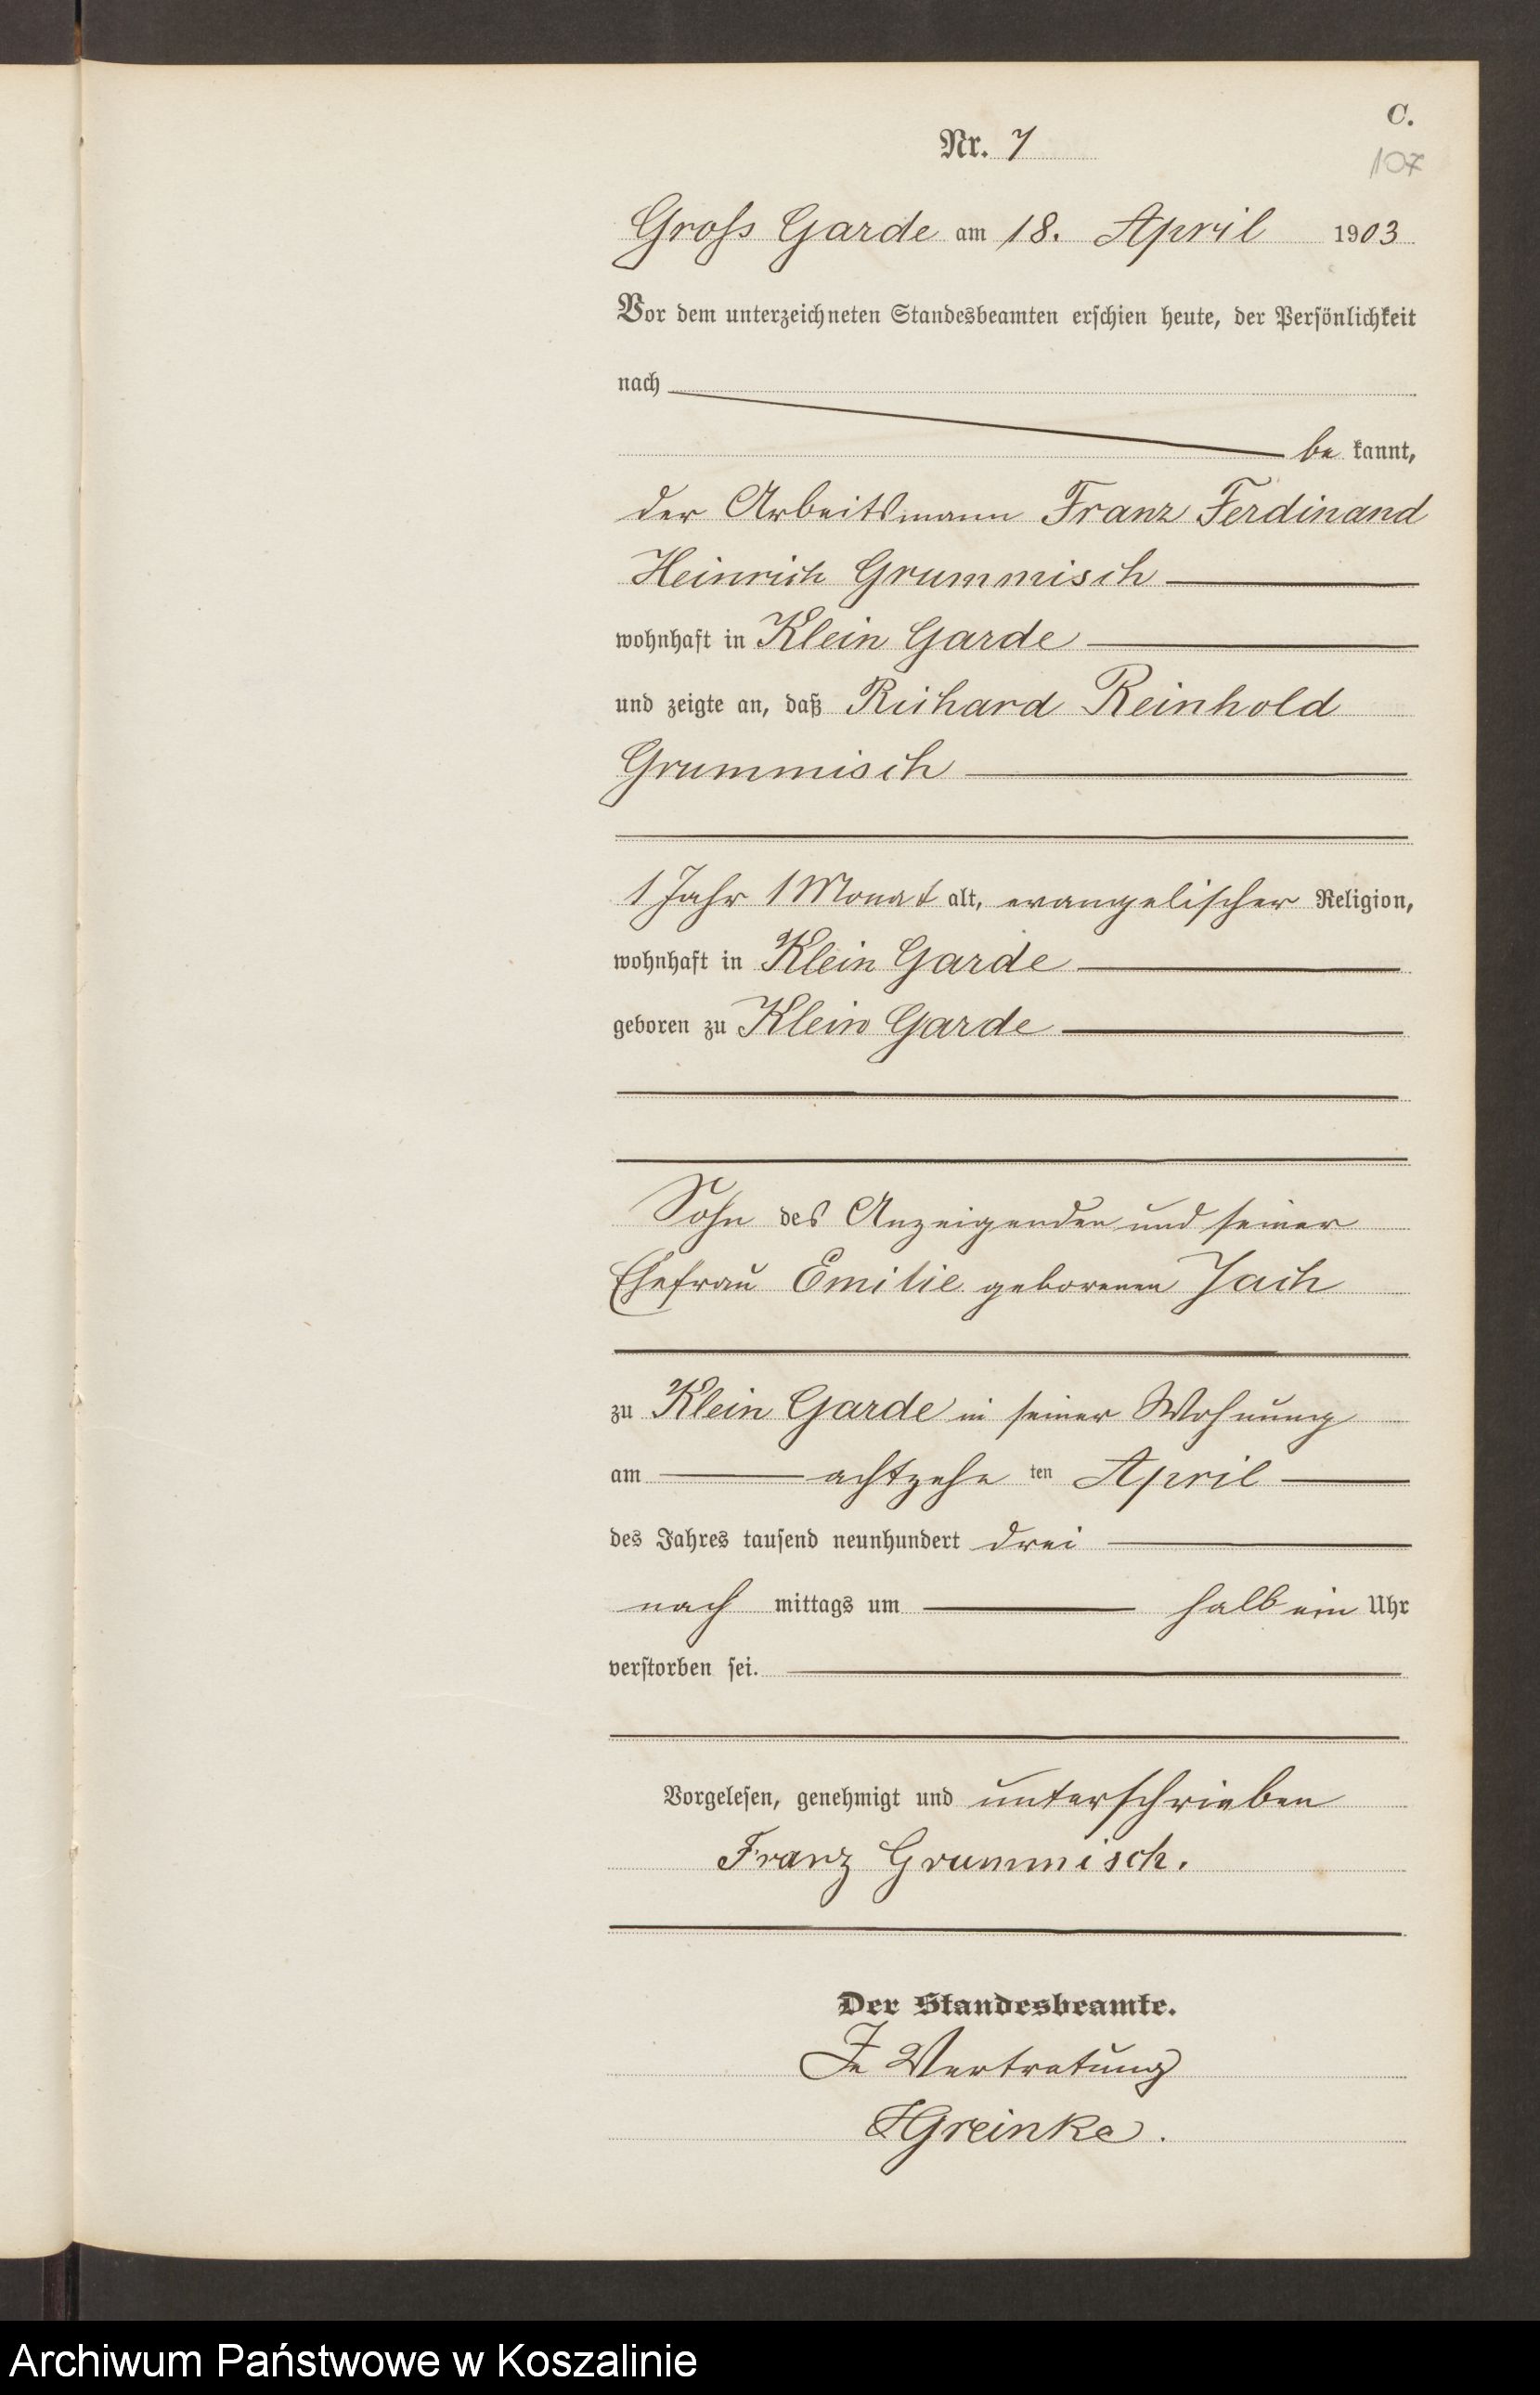 C.
Nr. 7
107
Gross Garde am 18. April 1903
Vor dem unterzeichneten Standesbeamten erschien heute, der Persönlichkeit
nach
be kannt,
der Arbeitsmann Franz Ferdinand
Heinrich Grummisch
wohnhaft in Klein Garde
und zeigte an, daß Richard Reinhold
Grummisch
1 Jahr 1 Monat alt, evangelischer Religion,
wohnhaft in Klein Garde
geboren zu Klein Garde
Sohn des Anzeigenden und seiner
Ehefrau Emilie geborenen Jach
zu Klein Garde in seiner Wohnung
am achtzehn ten April
des Jahres tausend neunhundert drei
nach mittags um halb ein Uhr
verstorben sei.
Vorgelesen, genehmigt und unterschrieben
Franz Grummisch.
Der Standesbeamte.
In Vertretung
HGreinke.
Archiwum Państwowe w Koszalinie